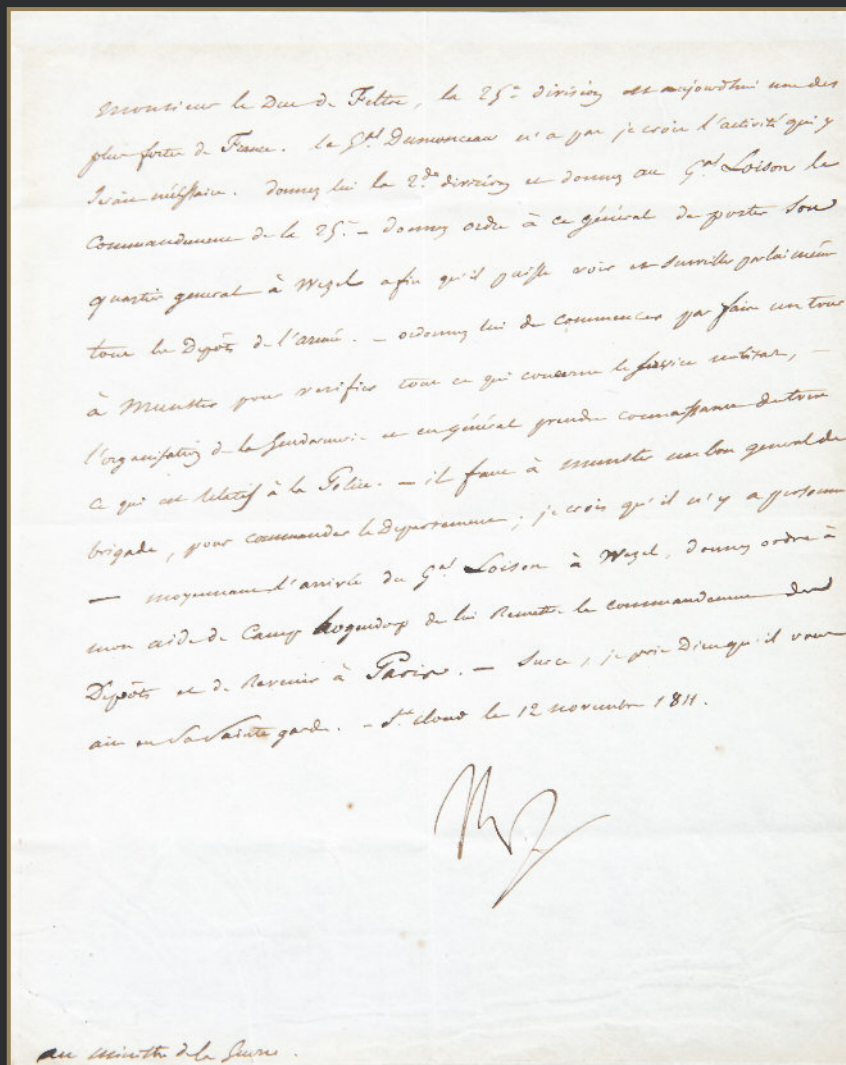 Monsieur le Duc de Feltre, la 25e division est aujourd'hui une des
plus fortes de France. le Gal Dumonceau n'a pas je crois l'activité qui y
serait nécessaire. donnez lui la 2de division et donnez au Gal Loison le
Commandement de la 25e – donnez ordre à ce général de porter son
quartier general à Wezel afin qu'il puisse voir et surveiller par lui même
tous les Depôts de l'armée. – ordonnez lui de commencer par faire un tour
à Munster pour verifier tout ce qui concerne le service militaire, –
l'organisation de la Gendarmerie et en général prendre connaissance de tout
ce qui est relatif à la Police. – il faut à munster un bon general de
brigade, pour commander le Departement; je crois qu'il n'y a personne
— moyennant l'arrivée du Gal Loison à Wezel, donnez ordre à
mon aide de Camp hogendorp de lui Remettre le commandement des
Depôts et de Revenir à Paris. – Sur ce, je prie Dieu qu'il vous
ait en Sa Sainte garde. – St. cloud le 12 novembre 1811.
au ministre de la Guerre.